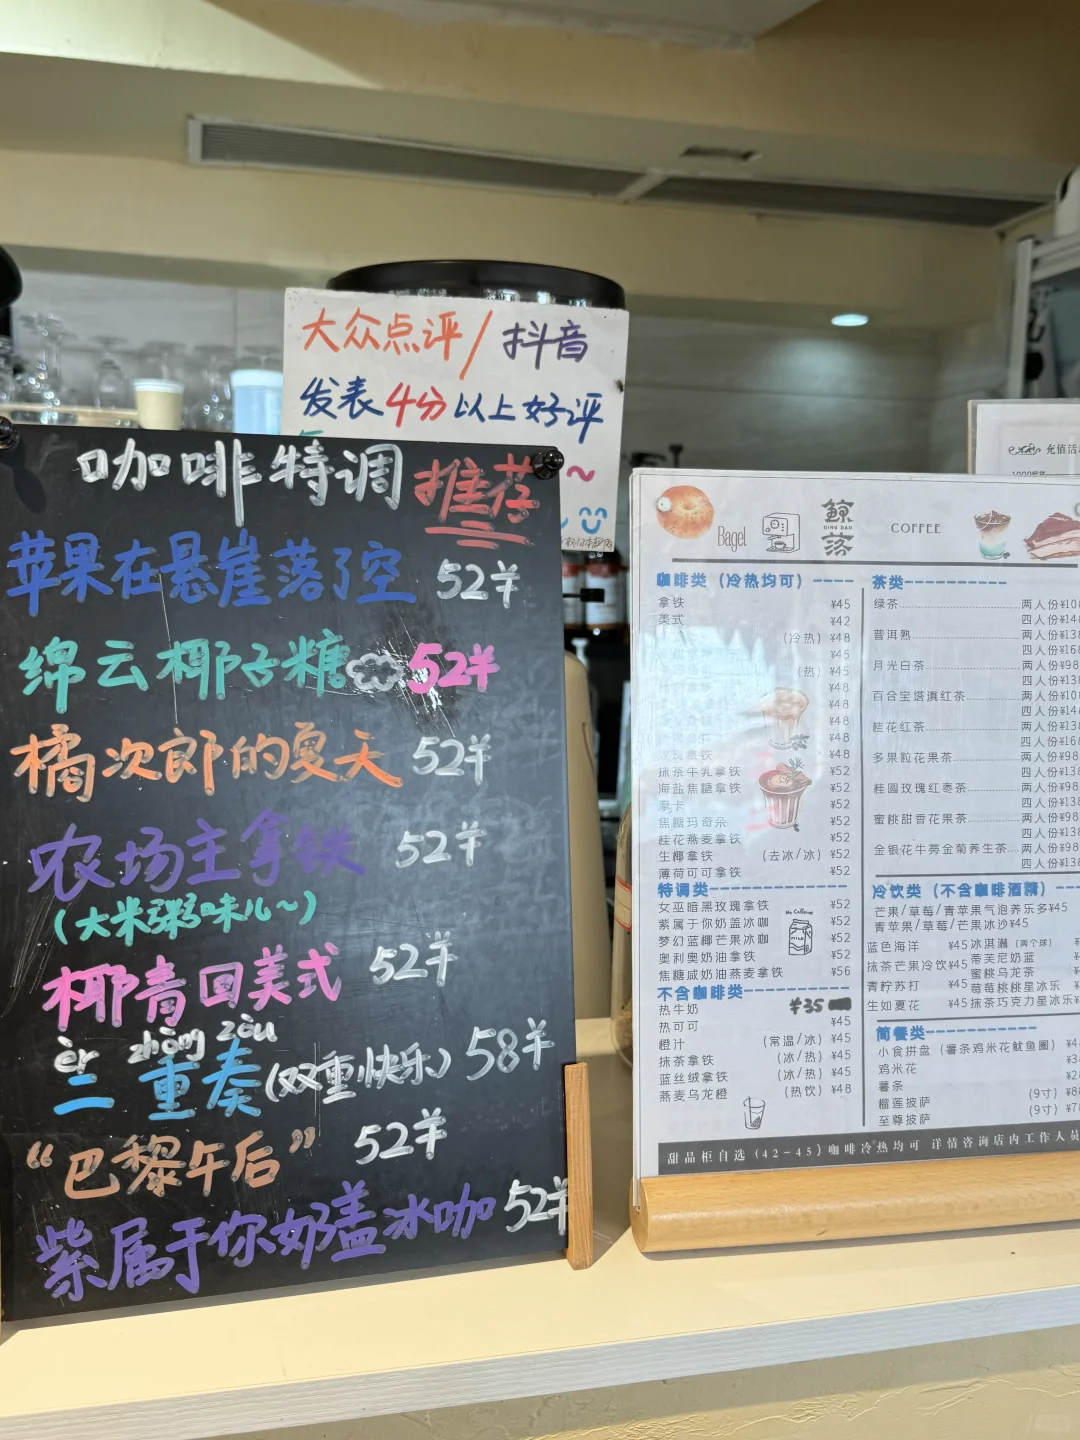 大众点评/抖音
发表4分以上好评
咖啡特调 推荐
苹果在悬崖落了空 52半
绵云椰子糖 52半
橘次郎的夏天 52半
农场主拿铁 52半
(大米粥味儿~)
椰青回美式 52半
èr zhòng zòu
二重奏(双重快乐) 58半
“巴黎午后” 52半
紫属于你奶盖冰咖 52半
充值活
Bagel
鲸落
QING DAO
COFFEE
咖啡类（冷热均可）
拿铁 ¥45
美式 ¥42
(冷热) ¥48
¥45
(热) ¥45
¥48
¥48
¥48
¥48
拿铁 ¥48
抹茶牛乳拿铁 ¥52
海盐焦糖拿铁 ¥52
摩卡 ¥52
焦糖玛奇朵 ¥52
桂花燕麦拿铁 ¥52
生椰拿铁 (去冰/冰) ¥52
薄荷可可拿铁 ¥52
特调类
女巫暗黑玫瑰拿铁 ¥52
紫属于你奶盖冰咖 ¥52
梦幻蓝椰芒果冰咖 ¥52
奥利奥奶油拿铁 ¥52
焦糖咸奶油燕麦拿铁 ¥56
No Caffeine
MILK
不含咖啡类
热牛奶 ¥35
热可可 ¥45
橙汁 (常温/冰) ¥45
抹茶拿铁 (冰/热) ¥45
蓝丝绒拿铁 (冰/热) ¥45
燕麦乌龙橙 (热饮) ¥48
茶类
绿茶 两人份¥10
四人份¥14
普洱熟 两人份¥13
四人份¥16
月光白茶 两人份¥98
四人份¥13
百合宝塔滇红茶 两人份¥10
四人份¥14
桂花红茶 两人份¥13
四人份¥16
多果粒花果茶 两人份¥98
四人份¥13
桂圆玫瑰红枣茶 两人份¥98
四人份¥13
蜜桃甜香花果茶 两人份¥98
四人份¥13
金银花牛蒡金菊养生茶 两人份¥98
四人份¥13
冷饮类（不含咖啡酒精）
芒果/草莓/青苹果气泡养乐多¥45
青苹果/草莓/芒果冰沙¥45
蓝色海洋 ¥45 冰淇淋 (两个球)
抹茶芒果冷饮¥45 蒂芙尼奶蓝
蜜桃乌龙茶
青柠苏打 ¥45 莓莓桃桃星冰乐
生如夏花 ¥45 抹茶巧克力星冰乐
简餐类
小食拼盘（薯条鸡米花鱿鱼圈）
鸡米花
薯条
榴莲披萨 (9寸)
至尊披萨 (9寸)
甜品柜自选(42-45)咖啡冷热均可 详情咨询店内工作人员